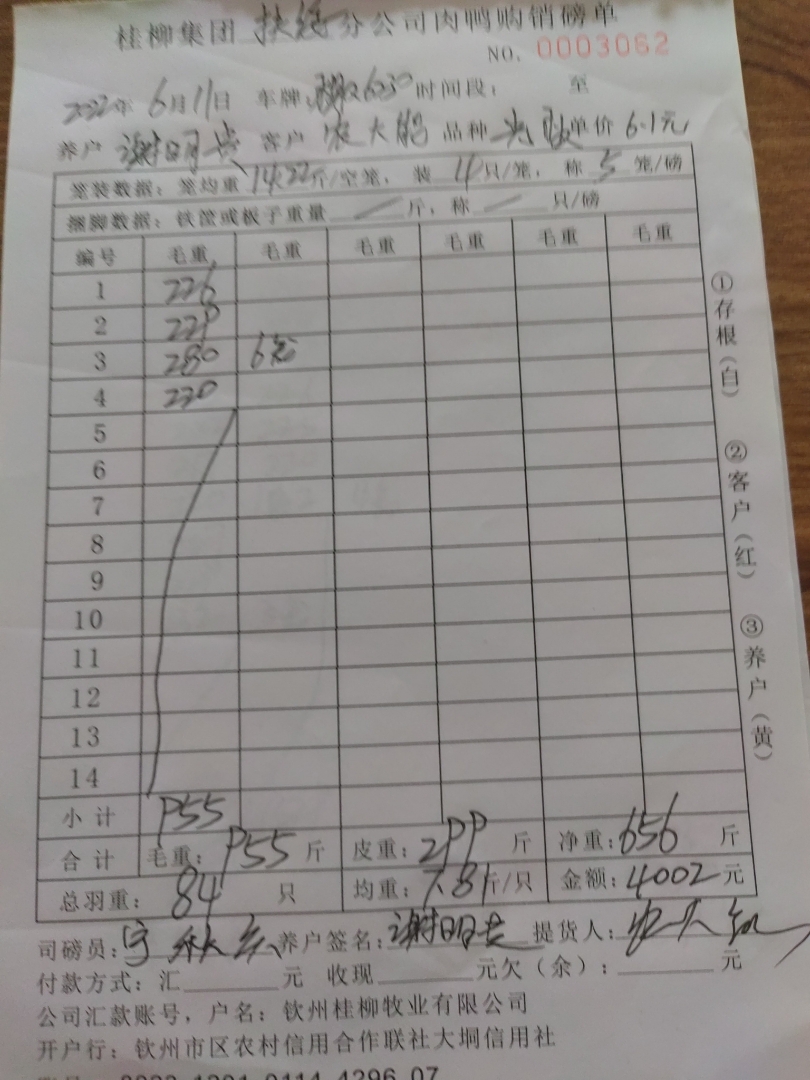 桂柳集团 扶绥 分公司肉鸭购销磅单
NO. 0003062
2022年 6月11日 车牌: 6030 时间段: 至
养户 谢明贵 客户 农大 品种 单价 6.1元
笼装数据: 笼均重 14.22斤/空笼, 装 4只/笼, 称 5 笼/磅
捆脚数据: 铁筐或板子重量 — 斤, 称 — 只/磅
编号 毛重 毛重 毛重 毛重 毛重 毛重
1 226
2 229
3 280 6笼
4 220
5
6
7
8
9
10
11
12
13
14
小计 955
合计 毛重: 955 斤 皮重: 299 斤 净重: 656 斤
总羽重: 84 只 均重: 7.81斤/只 金额: 4002元
司磅员: 养户签名: 谢明贵 提货人: 农大
付款方式: 汇 元 收现 元欠(余): 元
公司汇款账号, 户名: 钦州桂柳牧业有限公司
开户行: 钦州市区农村信用合作联社大垌信用社
①存根(白)
②客户(红)
③养户(黄)